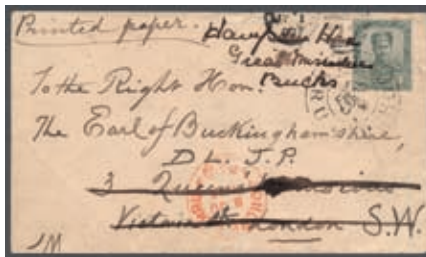 Printed paper.
Hampden Hse
Great Missenden
Bucks
To the Right Hon.
The Earl of Buckinghamshire,
D L. J. P.
3 Queens Mansions
Victoria St London S.W.